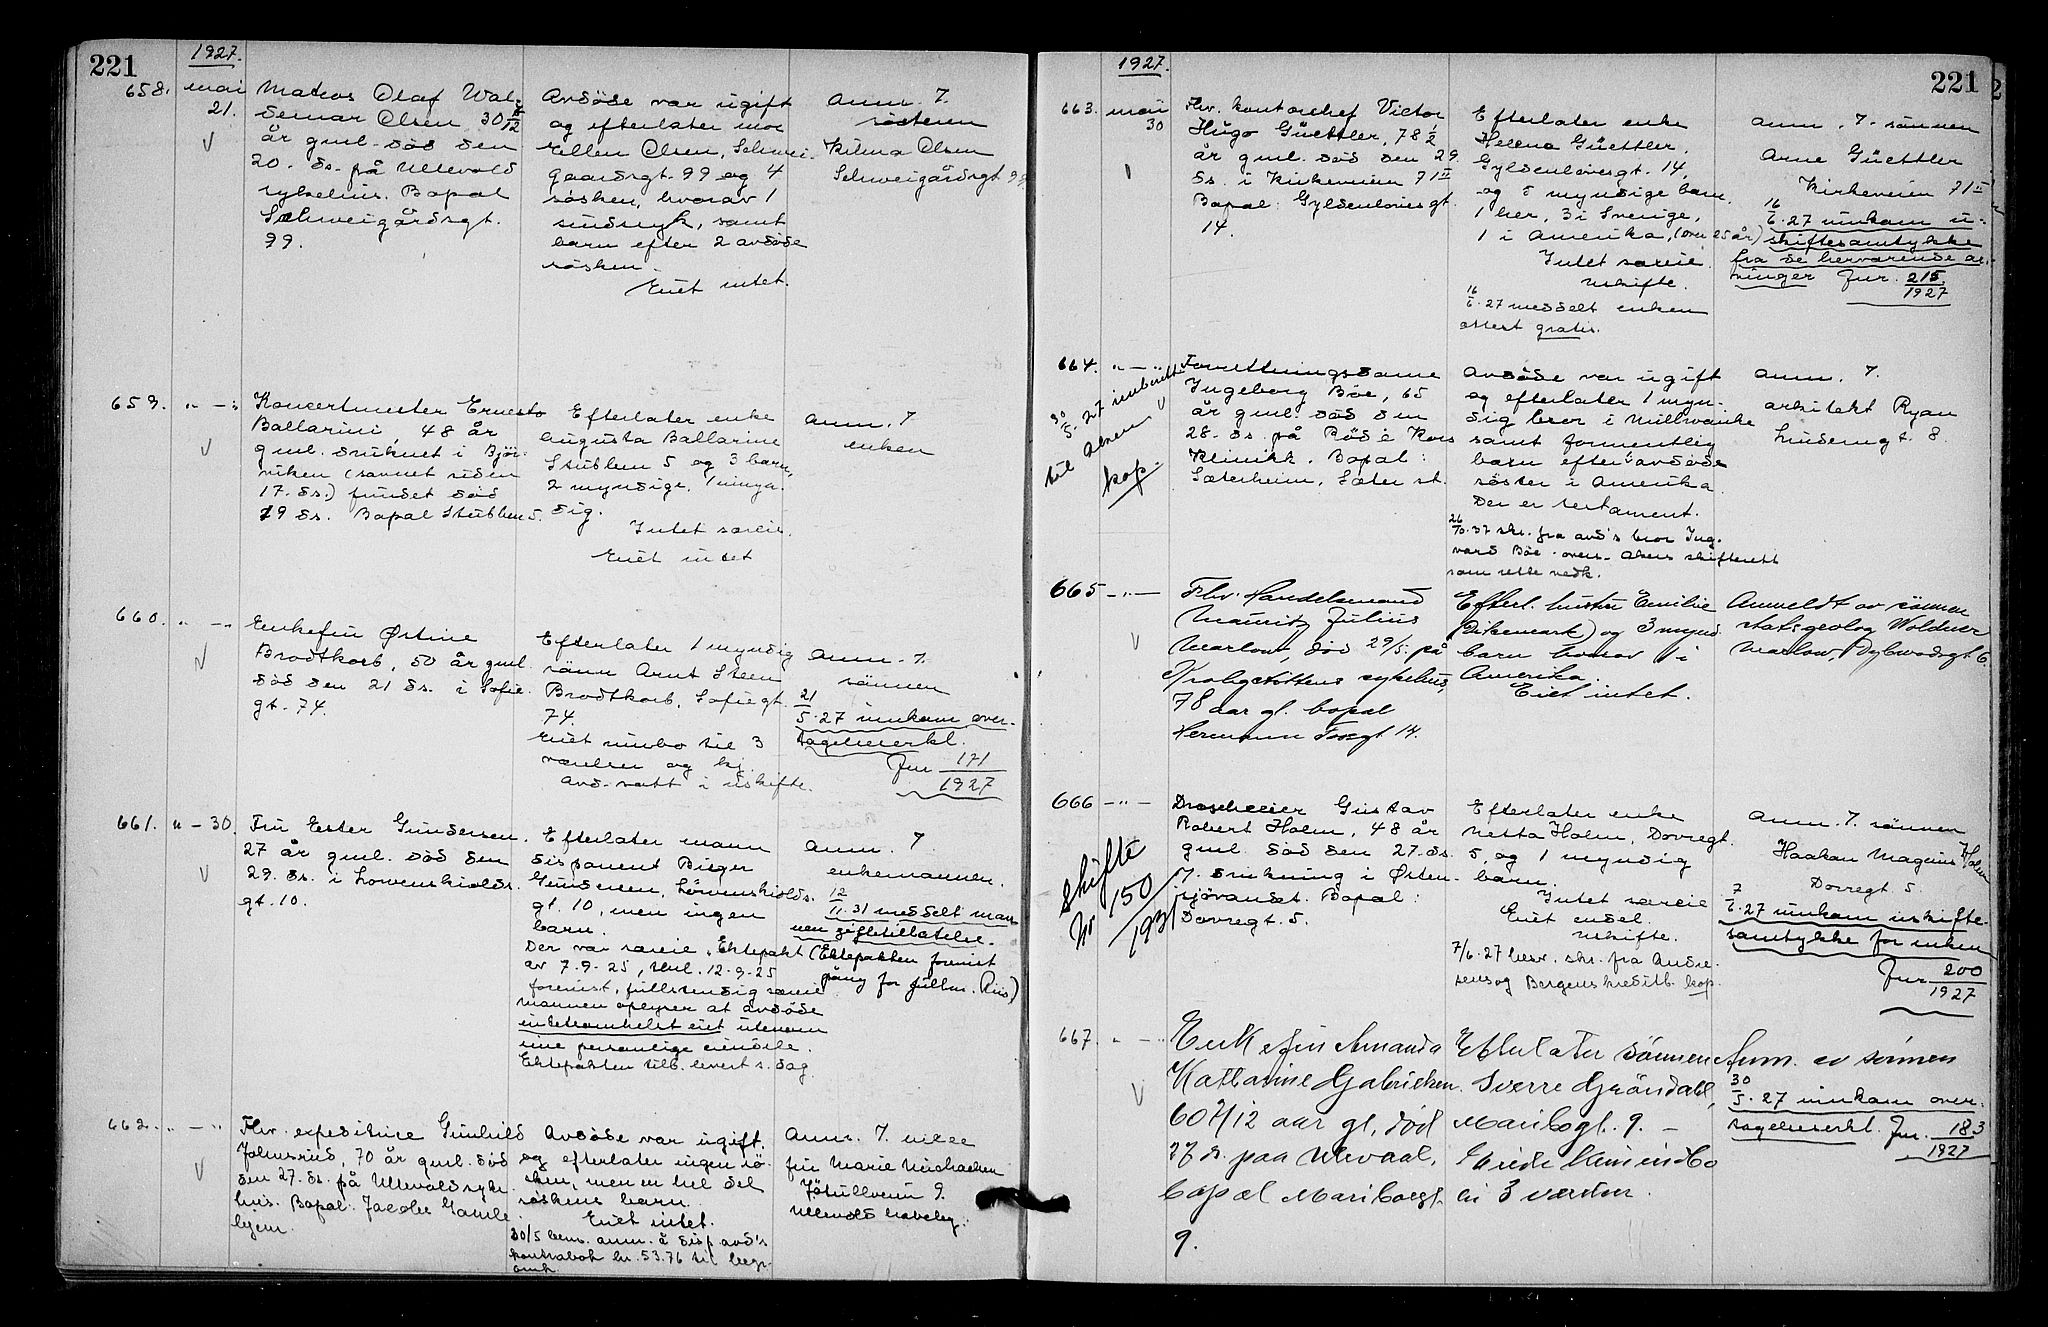 221
1927.
658. mai 21.
Markus Olaf Wal-
demar Olsen 30 5/12
år gml. död den
20. ds. på Ullevold
sykehus. Bopal
Schweigårdsgt.
99.
Avdöde var ugift
og efterlater mor
Ellen Olsen, Schwei-
gaardsgt. 99 og 4
sösken, hvorav 1
sindsyk, samt
barn efter 2 avdöde
sösken.
Eiet intet.
Anm. 7.
sösteren
Olsen
Schweigårdsgt 99
659. " - "
Koncertmester Ernesto
Ballarini, 48 år
gml. druknet i Björ-
viken (savnet siden
17. ds.) fundet död
19 ds. Bopal Stublien 5.
Efterlater enke
Augusta Ballarini
Stublien 5 og 3 barn,
2 myndige, 1 umyn-
dig.
Intet særeie.
Eiet intet
Anm. 7
enken
660. " - "
Enkefru Østine
Brodtkorb, 50 år gml.
död den 21 ds. i Sofie
gt. 74.
Efterlater 1 myndig
sönn Arnt Steen
Brodtkorb, Sofiegt.
74.
Eiet innbo til 3
værelser og kj.
Avd. satt i uskifte.
Anm. 7.
sönnen
21/5. 27 innkom over-
tagelseserkl.
Jnr 171/1927
661. " - 30.
Fru Ester Gundersen,
27 år gml. död den
29. ds. i Lövenskiolds
gt. 10.
Efterlater mann
disponent Birger
Gundersen, Lövenskiolds.
gt. 10, men ingen
barn.
Der var særeie. Ektepakt
av 7-9-25, tinl. 12-9-25
forevist, fullstendig særeie
mannen opgir at avdöde
intetsomhelst eiet utenom
sine personlige eiendele.
Ektepakten tilb. levert s. dag
Anm. 7
enkemannen.
12/11. 31 meddelt man-
nen giftetillatelse.
(Ektepakten forevist
påny for fullm. Riis)
662. " - "
Fhv. expeditrice Gunhild
Johnsrud, 70 år gml. död
den 27. ds. på Ullevold syke-
hus. Bopal: Jacobs Gamle
hjem.
Avdöde var ugift
og efterlater ingen sö-
sken, men en hel del
söskens barn.
Eiet intet.
30/5 bem. anm. å disp avd's
kontrabok kr. 53.76 til begr.
omk
Anm. 7. niese
fru Marie
9.
Ullevold haveby.
221
1927.
663. mai 30
Fhv. kontorchef Victor
Hugo Güettler, 78 1/2
år gml. död den 29.
ds. i Kirkeveien 71 II
Bopal: Gyldenlövesgt.
14.
Efterlater enke
Helena Güettler,
Gyldenlövesgt. 14,
og 5 myndige barn,
1 her, 3 i Sverige,
1 i Amerika, (over 25 år)
Intet særeie.
Uskifte.
16/6. 27 meddelt enken
attest gratis.
Anm. 7. sönnen
Arne Güettler
Kirkeveien 71 II
16/6. 27 innkom u-
skiftesamtykke
fra de herværende ar-
vinger Jnr. 215/1927
664. " - "
30/5. 27 innberett
til Akern
kop.
Forretningsdame
Ingeborg Böe, 65
år gml. död den
28. ds. på Röde Kors
Klinikk. Bopal:
Sæterheim, Sæter st.
Avdöde var ugift
og efterlater 1 myn-
dig bror i Millwauke
samt formentlig
barn efter avdöde
söster i Amerika.
Der er testament.
26/10. 37 skr. fra avd's bror Ing-
vard Böe overs. Akers skifterett
som rette vedk.
Anm. 7.
arkitekt Ryan
Lindemgt. 8.
665 - " -
Fhv. Handelsmand
Mauritz Julius
Marlow, död 29/5. på
Prolegstiftens sykehus,
78 aar gl. bopal
Hermann Fossgt 14.
Efterl. hustru Emilie
(Dikemark) og 3 mynd.
barn hvorav 1 i
Amerika.
Eiet intet.
Anmeldt av sönnen
statsgeolog Woldmer
Marlow, Dybwadsgt 6.
666 - " -
Skifte
Nr 150/1931
Droscheeier Gustav
Robert Holm, 48 år
gml. död den 27. ds.
v. drukning i Østen-
sjövandet. Bopal:
Dovregt. 5.
Efterlater enke
Netta Holm, Dovregt.
5, og 1 myndig
barn.
Intet særeie
Eiet endel.
Uskifte.
7/6. 27 besv. skr. fra Andre-
sens og Bergens kreditb. kop.
Anm. 7. sönnen
Haakon Magnus Holm
Dovregt 5.
7/6. 27 innkom uskifte-
samtykke for enken
Jnr 200/1927
667. " - "
Enkefru Amanda
Katharine Gabrielsen
60 7/12 aar gl, död
27 ds. paa Ulevaal,
bopæl Maribogt.
9.
Efterlater sönnen
Sverre Gröndahl,
Maribogt. 9. -
Eiede kun indbo
til 3 værelser.
Anm. av sönnen
30/5. 27 innkom over-
tagelseserkl. Jnr. 183/1927